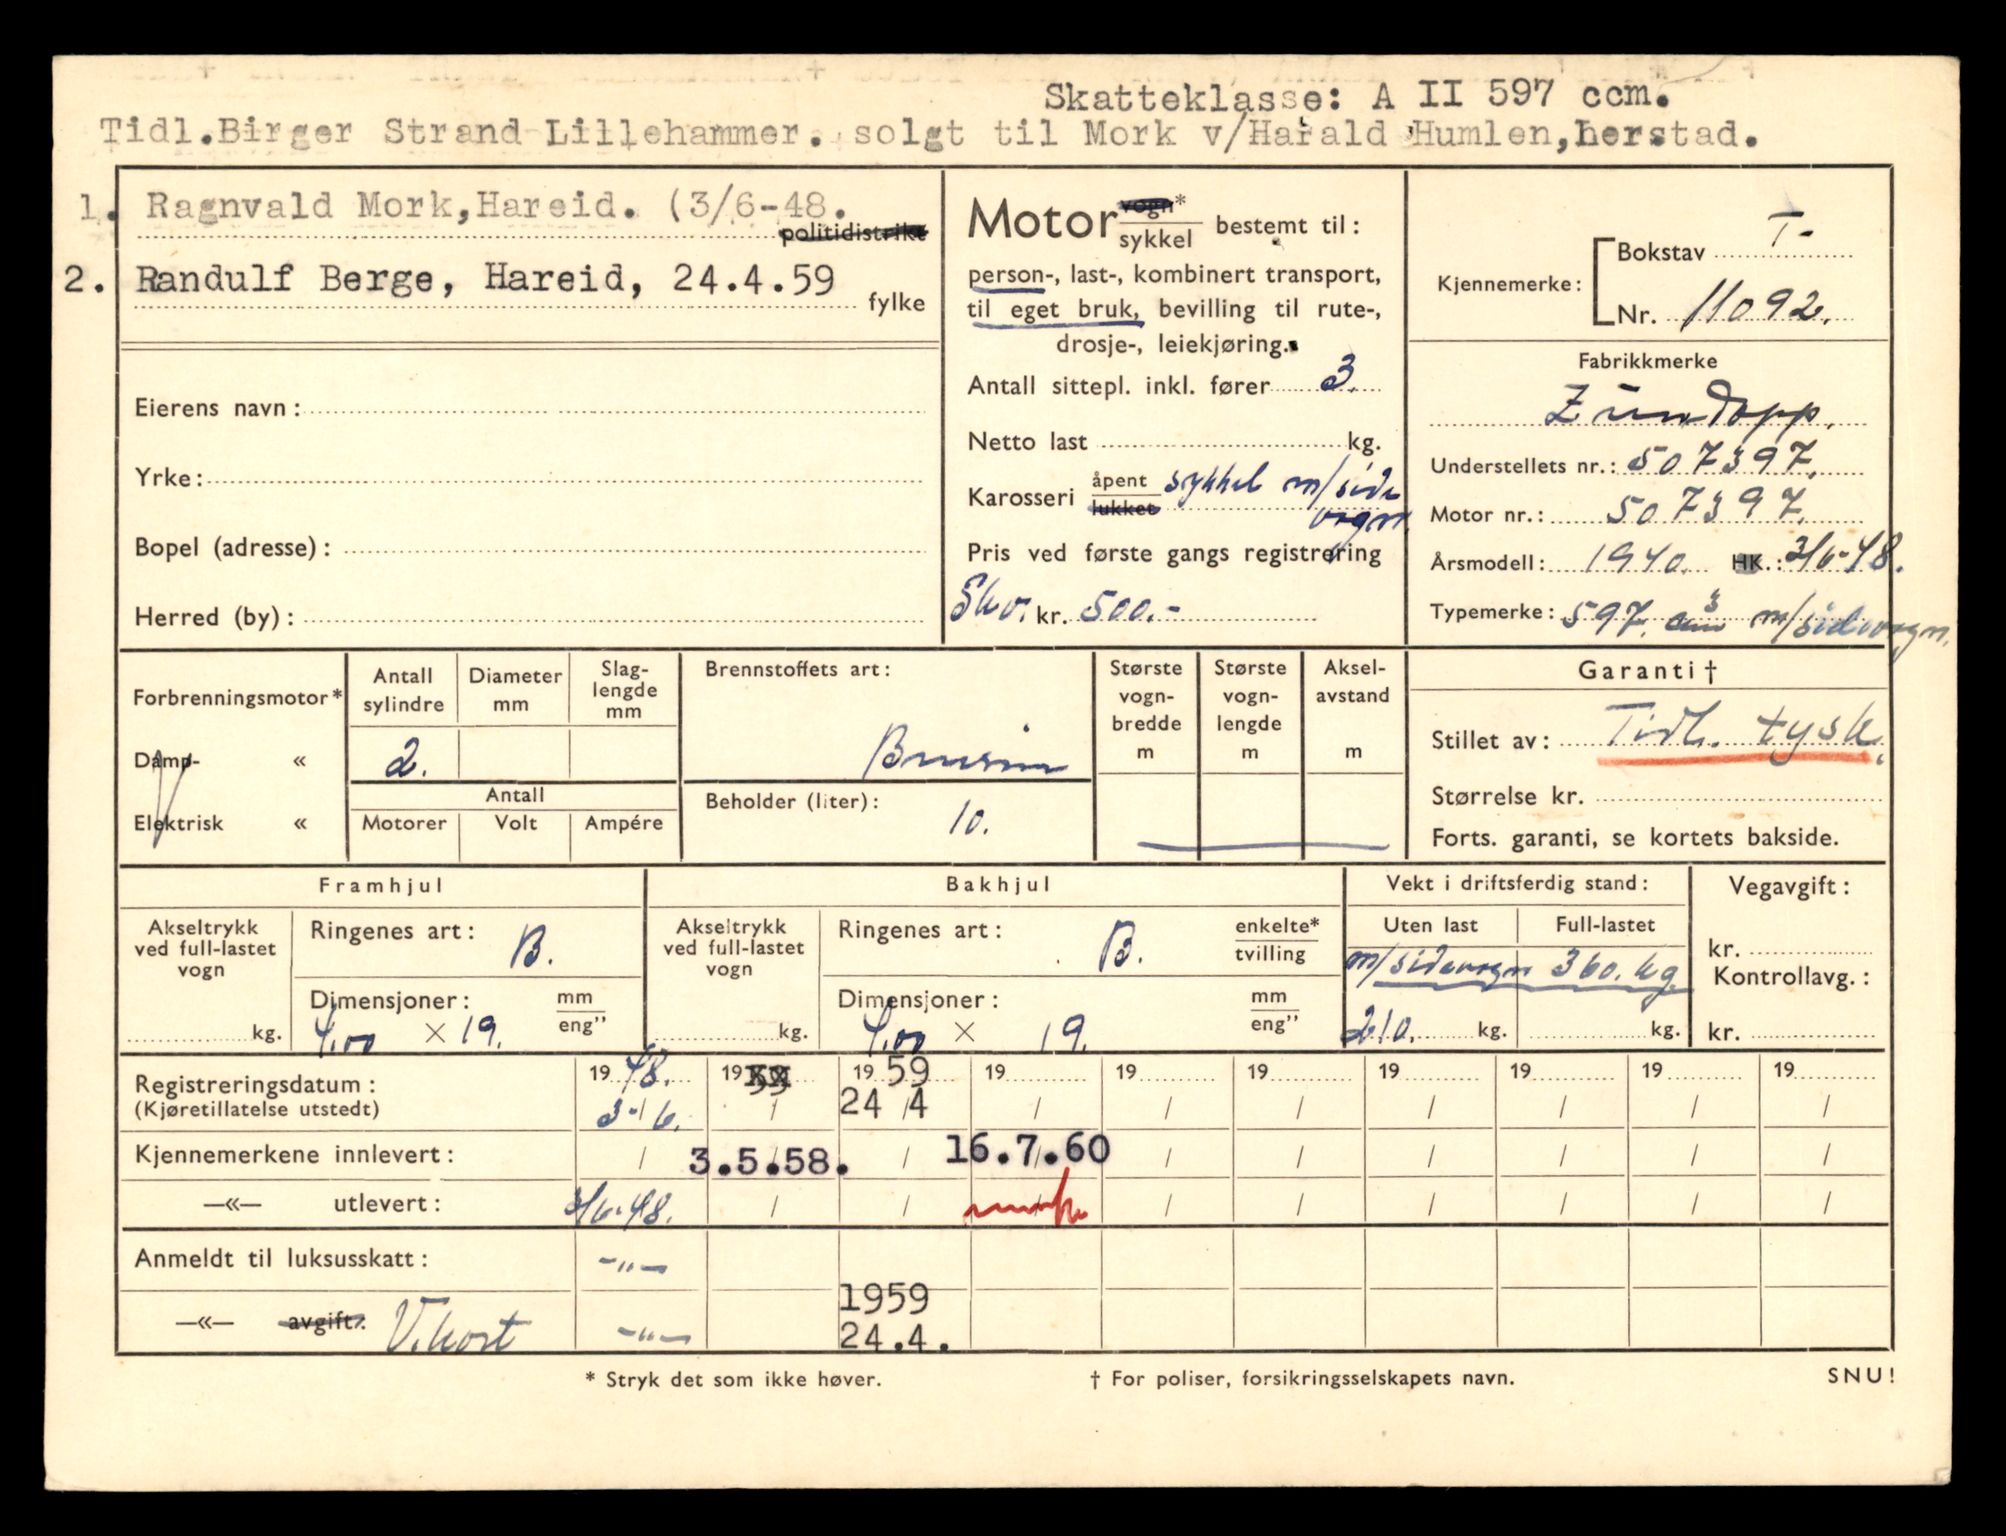 Skatteklasse: A II 597 ccm.
Tidl.Birger Strand Lillehammer. solgt til Mork v/Harald Humlen,herstad.
1. Ragnvald Mork,Hareid. (3/6-48.
politidistrikt
2. Randulf Berge, Hareid, 24.4.59
fylke
Eierens navn:
Yrke:
Bopel (adresse):
Herred (by):
Motor vogn* sykkel bestemt til:
person-, last-, kombinert transport,
til eget bruk, bevilling til rute-,
drosje-, leiekjøring.
Antall sittepl. inkl. fører 3.
Netto last kg.
Karosseri åpent lukket sykkel m/side
vogn.
Pris ved første gangs registrering
Skv. kr. 500.-
Kjennemerke: Bokstav T-
Nr. 11092.
Fabrikkmerke
Zündapp.
Understellets nr.: 507397.
Motor nr.: 507397.
Årsmodell: 1940. HK.: 3/6-48.
Typemerke: 597. cm³ m/sidevogn.
Forbrenningsmotor*
Damp- «
Elektrisk «
Antall sylindre
Diameter mm
Slag-lengde mm
2.
Antall
Motorer Volt Ampére
Brennstoffets art:
Bensin
Beholder (liter):
10.
Største vogn-bredde m
Største vogn-lengde m
Aksel-avstand m
Garanti †
Stillet av: Tidl. tysk.
Størrelse kr.
Forts. garanti, se kortets bakside.
Framhjul
Akseltrykk ved full-lastet vogn
kg.
Ringenes art: B.
Dimensjoner: mm eng”
4.00 × 19.
Bakhjul
Akseltrykk ved full-lastet vogn
kg.
Ringenes art: B. enkelte* tvilling
Dimensjoner: mm eng”
4.00 × 19.
Vekt i driftsferdig stand:
Uten last Full-lastet
m/sidevogn 360. kg.
210. kg. kg.
Vegavgift:
kr.
Kontrollavg.:
kr.
Registreringsdatum: 19 48. 19 19 59 19 19 19 19 19 19 19
(Kjøretillatelse utstedt) 3-/6. / 24/4 / / / / / / /
Kjennemerkene innlevert: / 3.5.58. / 16.7.60 / / / / / /
—«— utlevert: 3/6-48. / / / / / / / /
Anmeldt til luksusskatt: -"-
—«— avgift: V.kort -"- 1959
24.4.
* Stryk det som ikke høver.
† For poliser, forsikringsselskapets navn.
SNU!